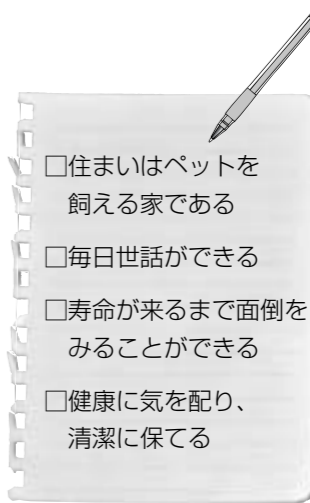 □住まいはペットを
飼える家である
□毎日世話ができる
□寿命が来るまで面倒を
みることができる
□健康に気を配り、
清潔に保てる